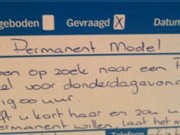 geboden Gevraagd X Datum
Permanent Model
en op zoek naar een P
el voor donderdagavond
19.00 uur.
ft u kort haar en zou u
ermanent willen laat het m
Telefoon